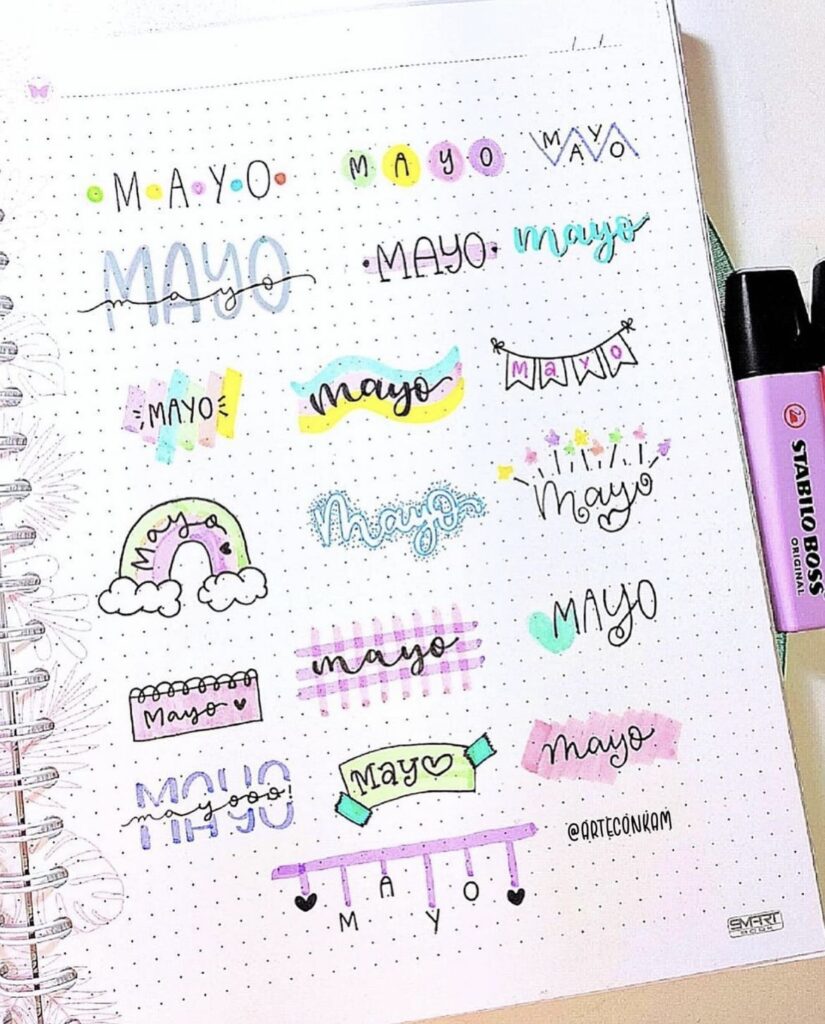 / /
M A Y O
M A Y O
M A Y O
MAYO
mayo
MAYO
mayo
MAYO
mayo
M a y o
Mayo
mayo
Mayo
mayo
MAYO
Mayo
MAYO
mayooo!
May
mayo
@ARTECONKAM
M A Y O
SMART
BOOK
STABILO BOSS
ORIGINAL